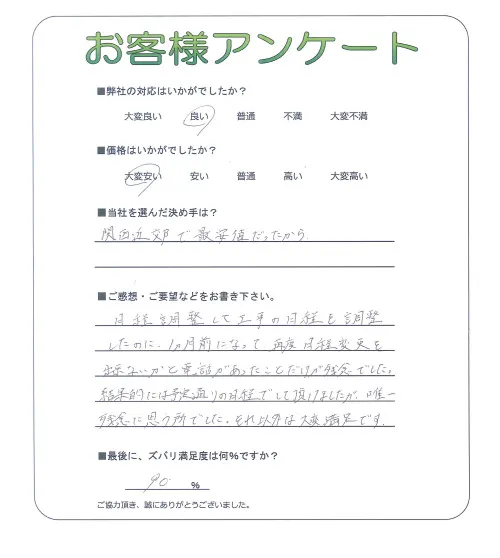 お客様アンケート
■弊社の対応はいかがでしたか？
大変良い 良い 普通 不満 大変不満
■価格はいかがでしたか？
大変安い 安い 普通 高い 大変高い
■当社を選んだ決め手は？
関西近郊で最安値だったから
■ご感想・ご要望などをお書き下さい。
日程調整して工事の日程も調整
したのに、1ヵ月前になって再度日程変更を
出来ないかと電話があったことだけが残念でした。
結果的には予定通りの日程でして頂けましたが、唯一
残念に思う所でした。それ以外は大変満足です。
■最後に、ズバリ満足度は何%ですか？
90 %
ご協力頂き、誠にありがとうございました。